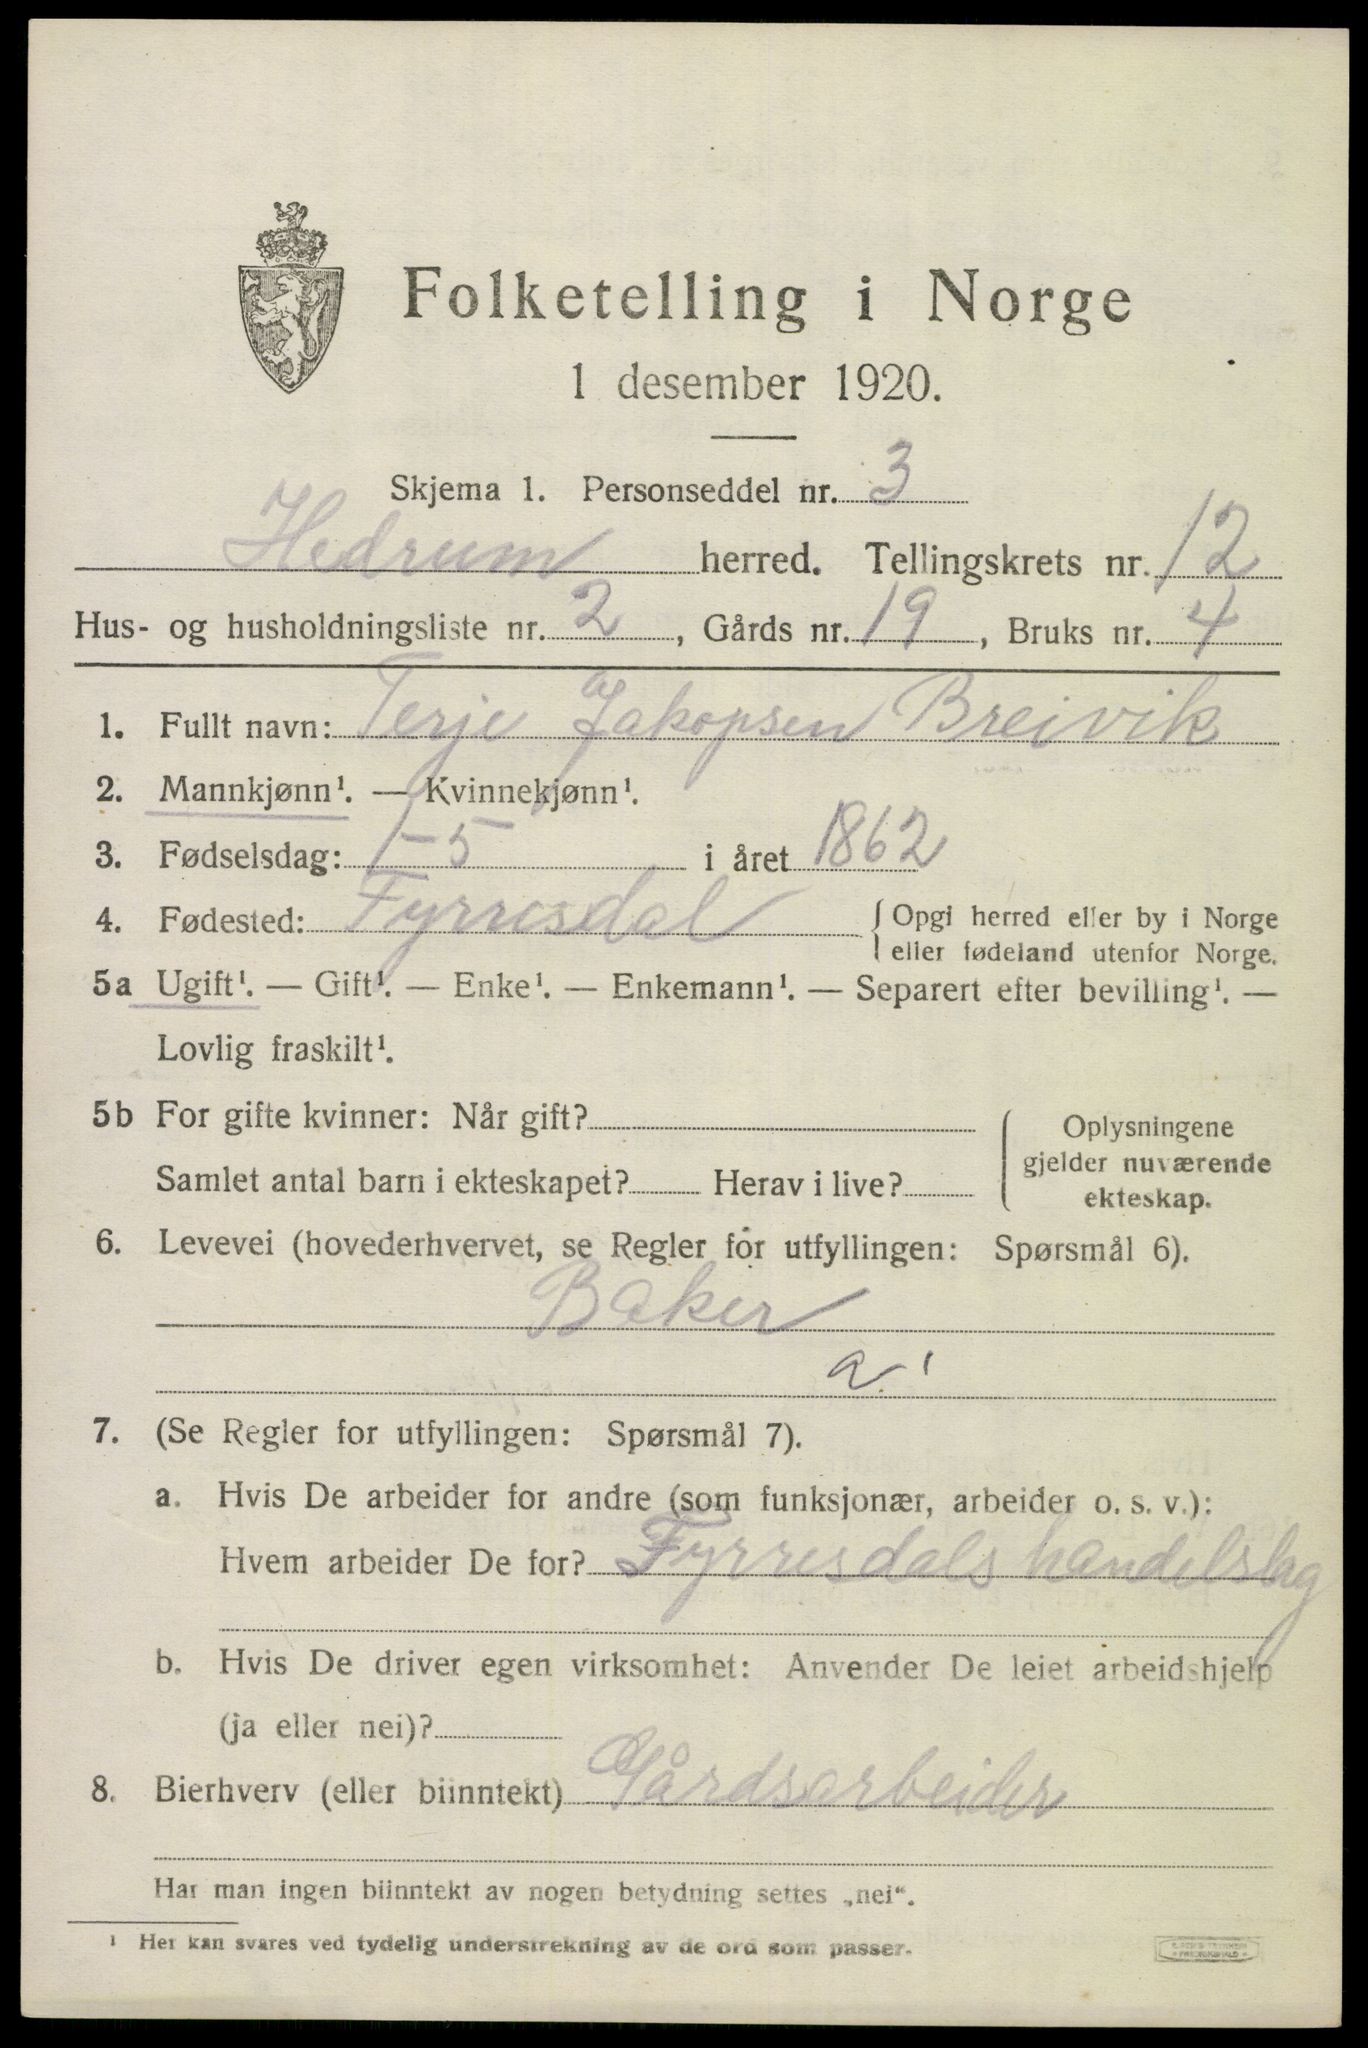 Folketelling i Norge
1 desember 1920.
Skjema 1. Personseddel nr. 3
Hedrum herred. Tellingskrets nr. 12
Hus- og husholdningsliste nr. 2, Gårds nr. 19, Bruks nr. 4
1. Fullt navn: Terje Jakopsen Breivik
2. Mannkjønn¹. — Kvinnekjønn¹.
3. Fødselsdag: 1-5 i året 1862
4. Fødested: Fyrresdal {Opgi herred eller by i Norge
eller fødeland utenfor Norge.
5a Ugift¹. — Gift¹. — Enke¹. — Enkemann¹. — Separert efter bevilling¹. —
Lovlig fraskilt¹.
5b For gifte kvinner: Når gift?
Samlet antal barn i ekteskapet? Herav i live?
Oplysningene
gjelder nuværende
ekteskap.
6. Levevei (hovederhvervet, se Regler for utfyllingen: Spørsmål 6).
Baker
a. 1
7. (Se Regler for utfyllingen: Spørsmål 7).
a. Hvis De arbeider for andre (som funksjonær, arbeider o. s. v.):
Hvem arbeider De for? Fyrresdals handelslag
b. Hvis De driver egen virksomhet: Anvender De leiet arbeidshjelp
(ja eller nei)?
8. Bierhverv (eller biinntekt) Gårdsarbeider
Har man ingen biinntekt av nogen betydning settes „nei“.
¹ Her kan svares ved tydelig understrekning av de ord som passer.